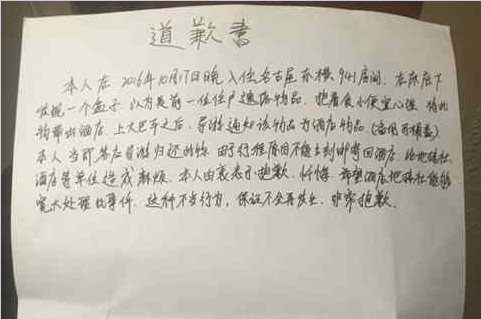 道歉書
本人在 2016年10月17日晚入住名古屋东横 941房间，在床底下
发现一个盒子，以为是前一位住户遗落物品，抱着贪小便宜心理，将此
物带出酒店，上大巴车之后，导游通知该物品为酒店物品（备用马桶盖）
本人当即答应导游归还此物，由于行程原因不能立刻邮寄回酒店，给地接社
酒店等单位造成麻烦，本人由衷表示抱歉、忏悔，希望酒店地接社能够
宽大处理此事件，这种不当行为，保证不会再发生，非常抱歉。